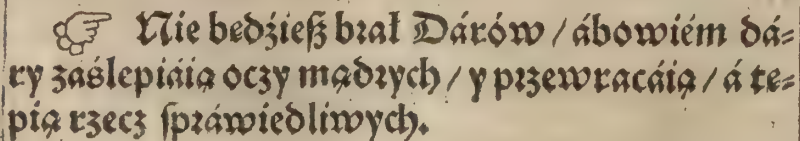 ☞ Nie bedźieß brał Dárów / ábowiém dá⸗
ry záślepiáią oczy mądrych / y przewracáią / á te⸗
pią rzecz ſpráwiedliwych.